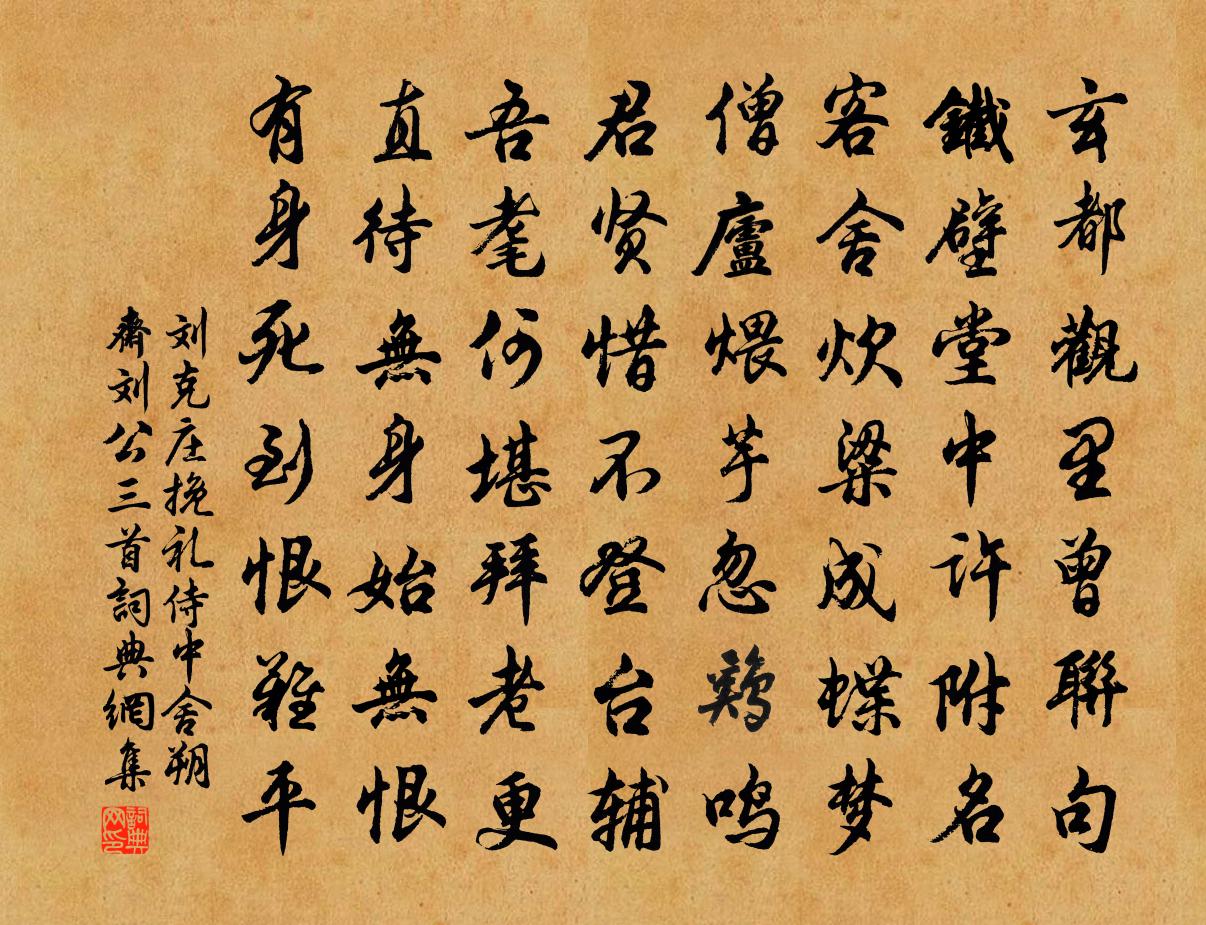 玄都觀里曾聯句
鐵壁堂中許附名
客舍炊粱成蝶梦
僧廬煨芋忽鷄鸣
君贤惜不登台辅
吾耄何堪拜老更
直待無身始無恨
有身死到恨難平
刘克庄挽礼侍中舍朔
齋刘公三首詞典網集
詞典
网印